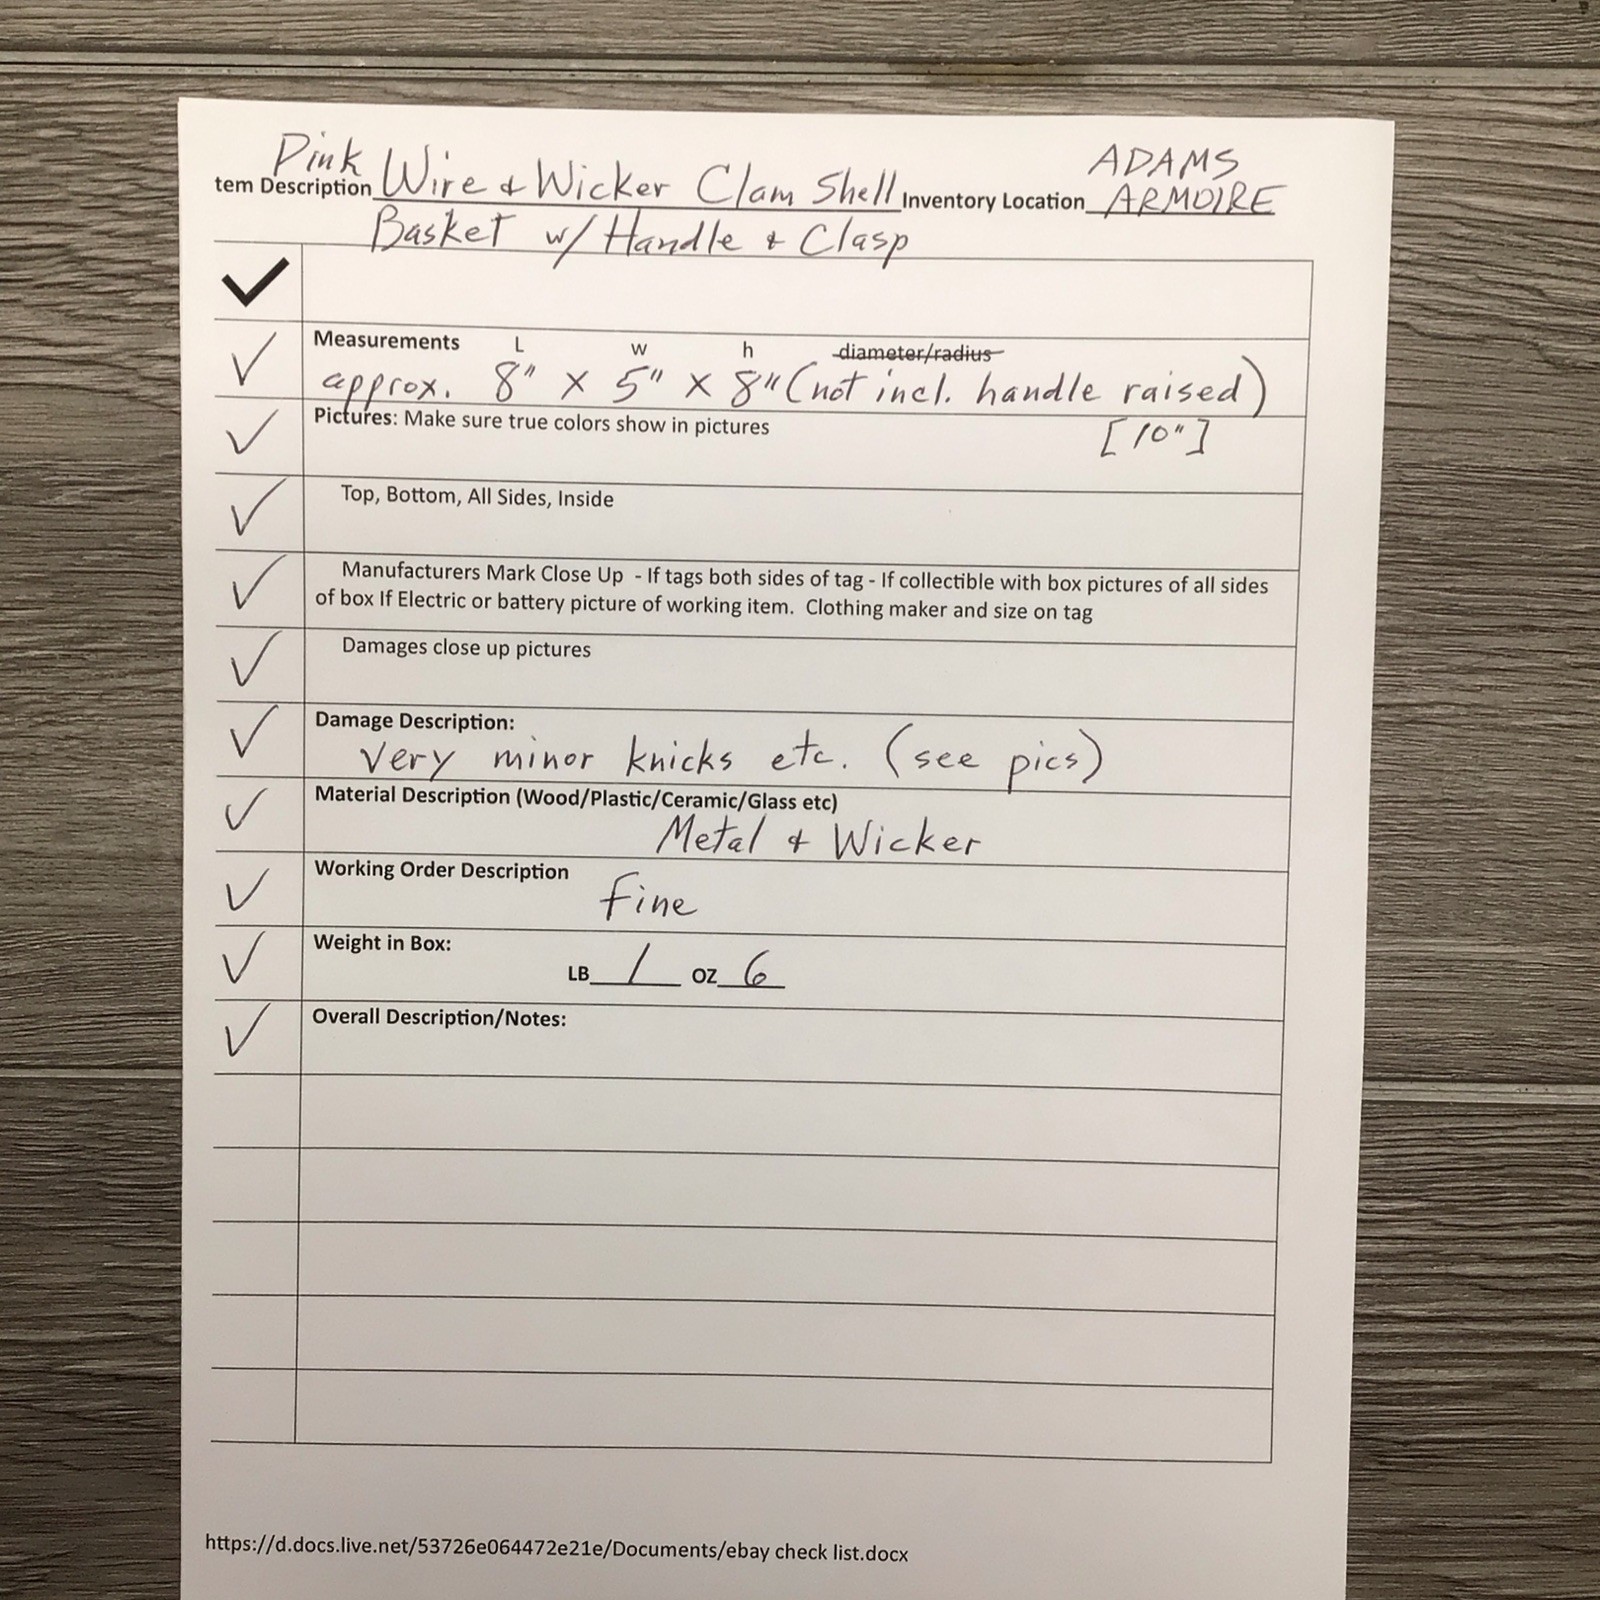 Pink ADAMS
tem Description Wire & Wicker Clam Shell Inventory Location ARMOIRE
Basket w/ Handle & Clasp
Measurements L w h diameter/radius
approx. 8" x 5" x 8" (not incl. handle raised)
Pictures: Make sure true colors show in pictures [10"]
Top, Bottom, All Sides, Inside
Manufacturers Mark Close Up - If tags both sides of tag - If collectible with box pictures of all sides
of box If Electric or battery picture of working item. Clothing maker and size on tag
Damages close up pictures
Damage Description:
very minor knicks etc. (see pics)
Material Description (Wood/Plastic/Ceramic/Glass etc)
Metal & Wicker
Working Order Description
fine
Weight in Box:
LB 1 OZ 6
Overall Description/Notes:
https://d.docs.live.net/53726e064472e21e/Documents/ebay check list.docx